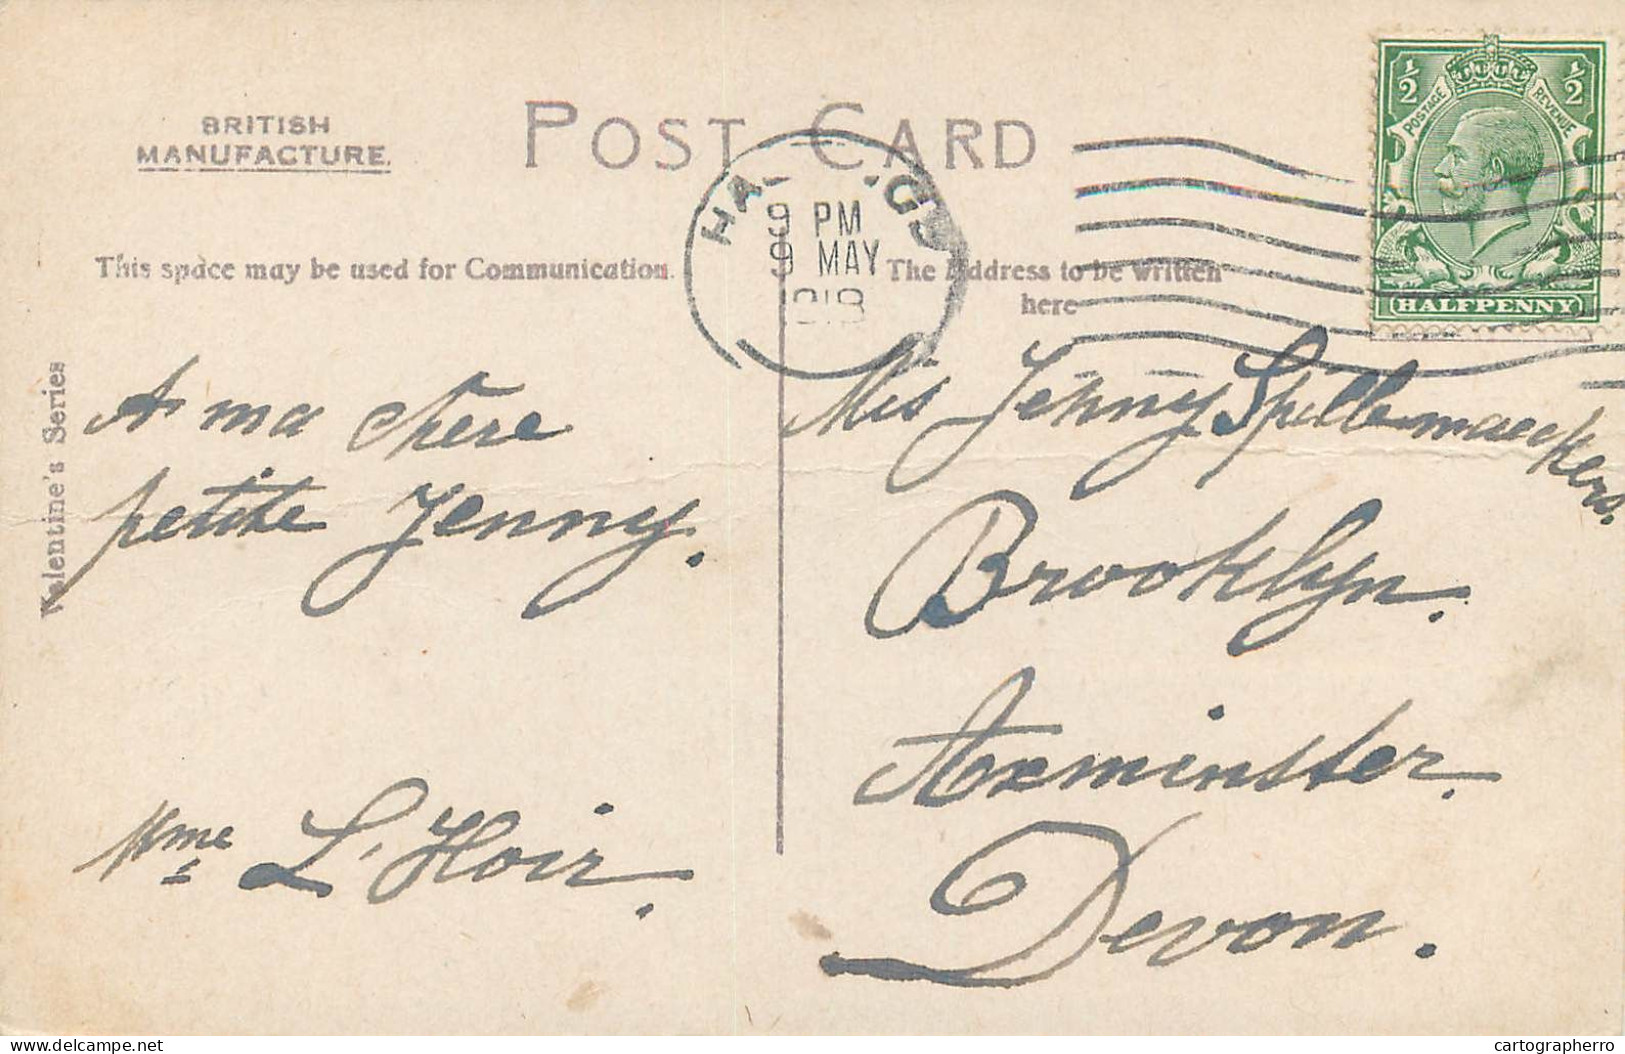 BRITISH
MANUFACTURE.
POST CARD
9 PM
9 MAY
This space may be used for Communication.
The Address to be written
here
½ ½
POSTAGE REVENUE
HALFPENNY
Valentine's Series
A ma chère
petite Jenny.
Mme L'Hoir.
Mis Jenny Spillemaeckers.
Brooklyn.
Axminster.
Devon.
delcampe.net
cartographerro